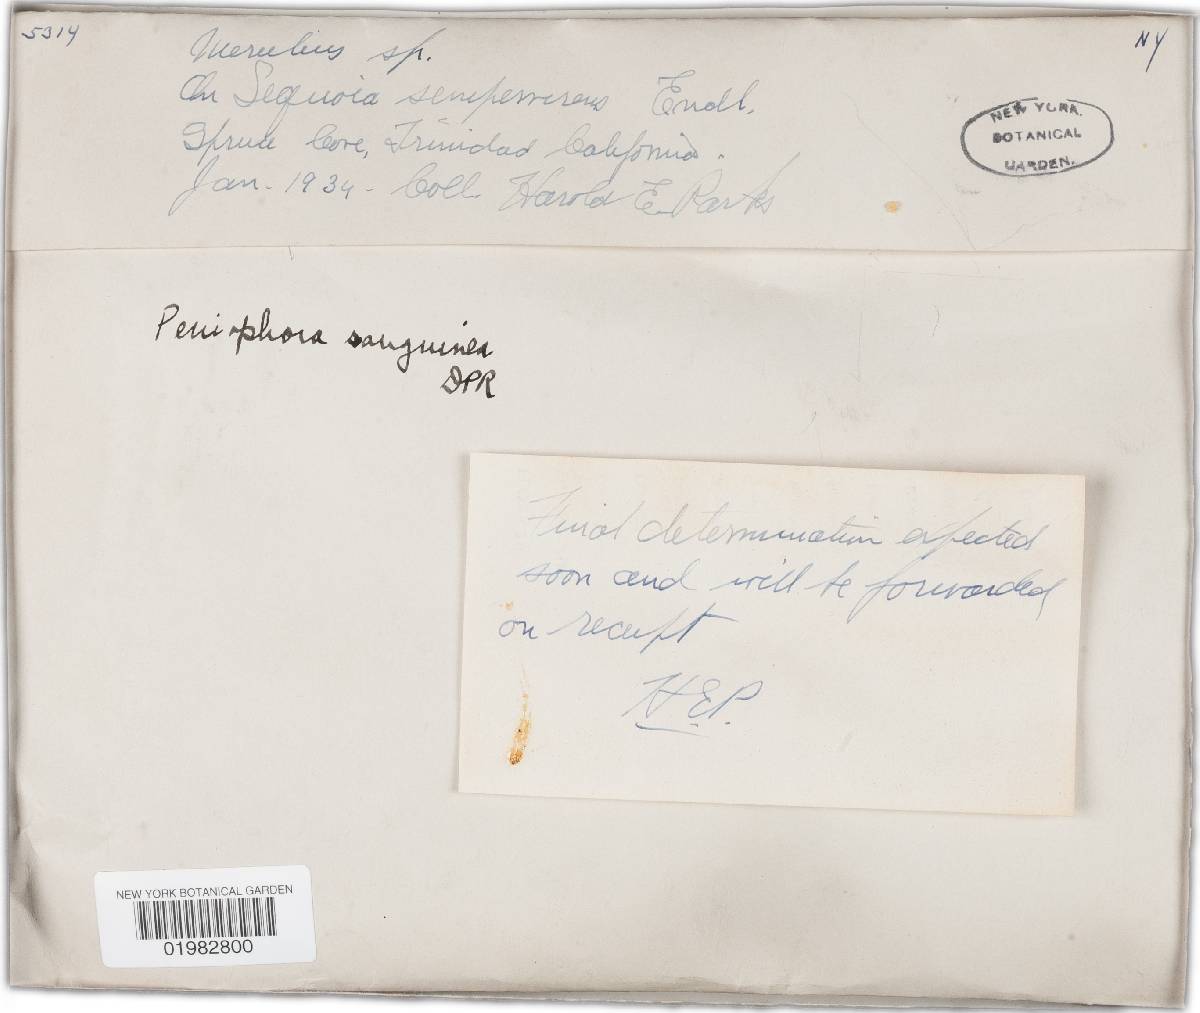 5314
NY
Merulius sp.
On Sequoia sempervirens Endl.
Spruce Cove, Trinidad California.
Jan. 1934 - Coll. Harold E. Parks
NEW YORK
BOTANICAL
GARDEN.
Peniophora sanguinea
DPR
Final determination expected
soon and will be forwarded
on receipt
H.E.P.
NEW YORK BOTANICAL GARDEN
01982800